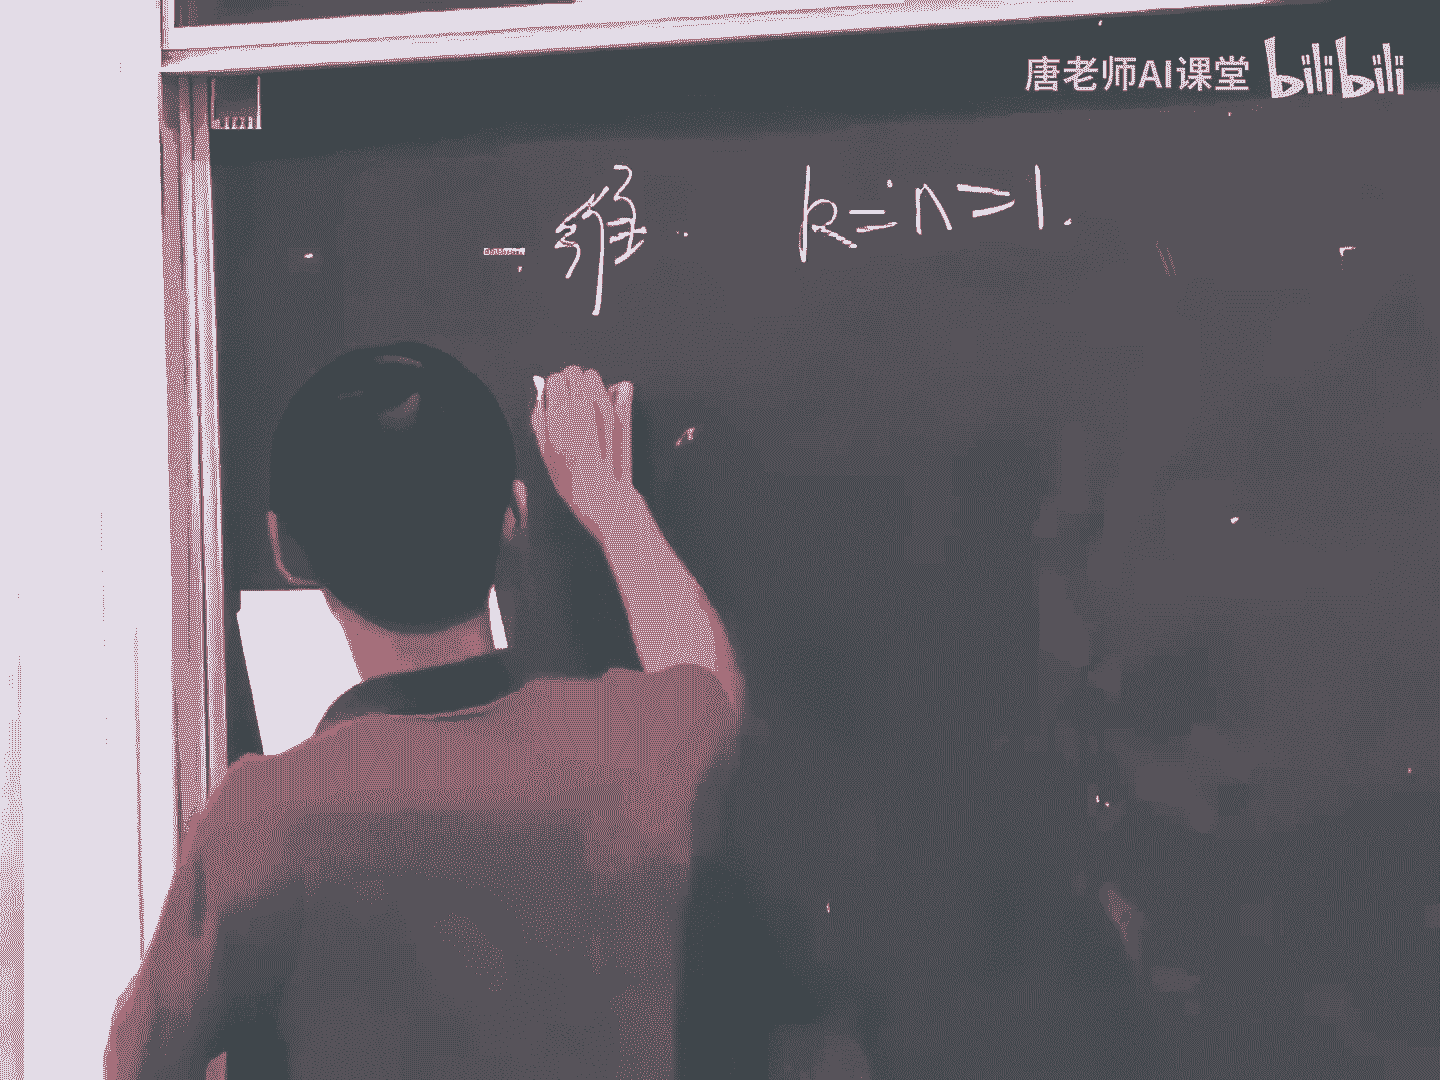 唐老师AI课堂 bilibili
一维. k=n=1.